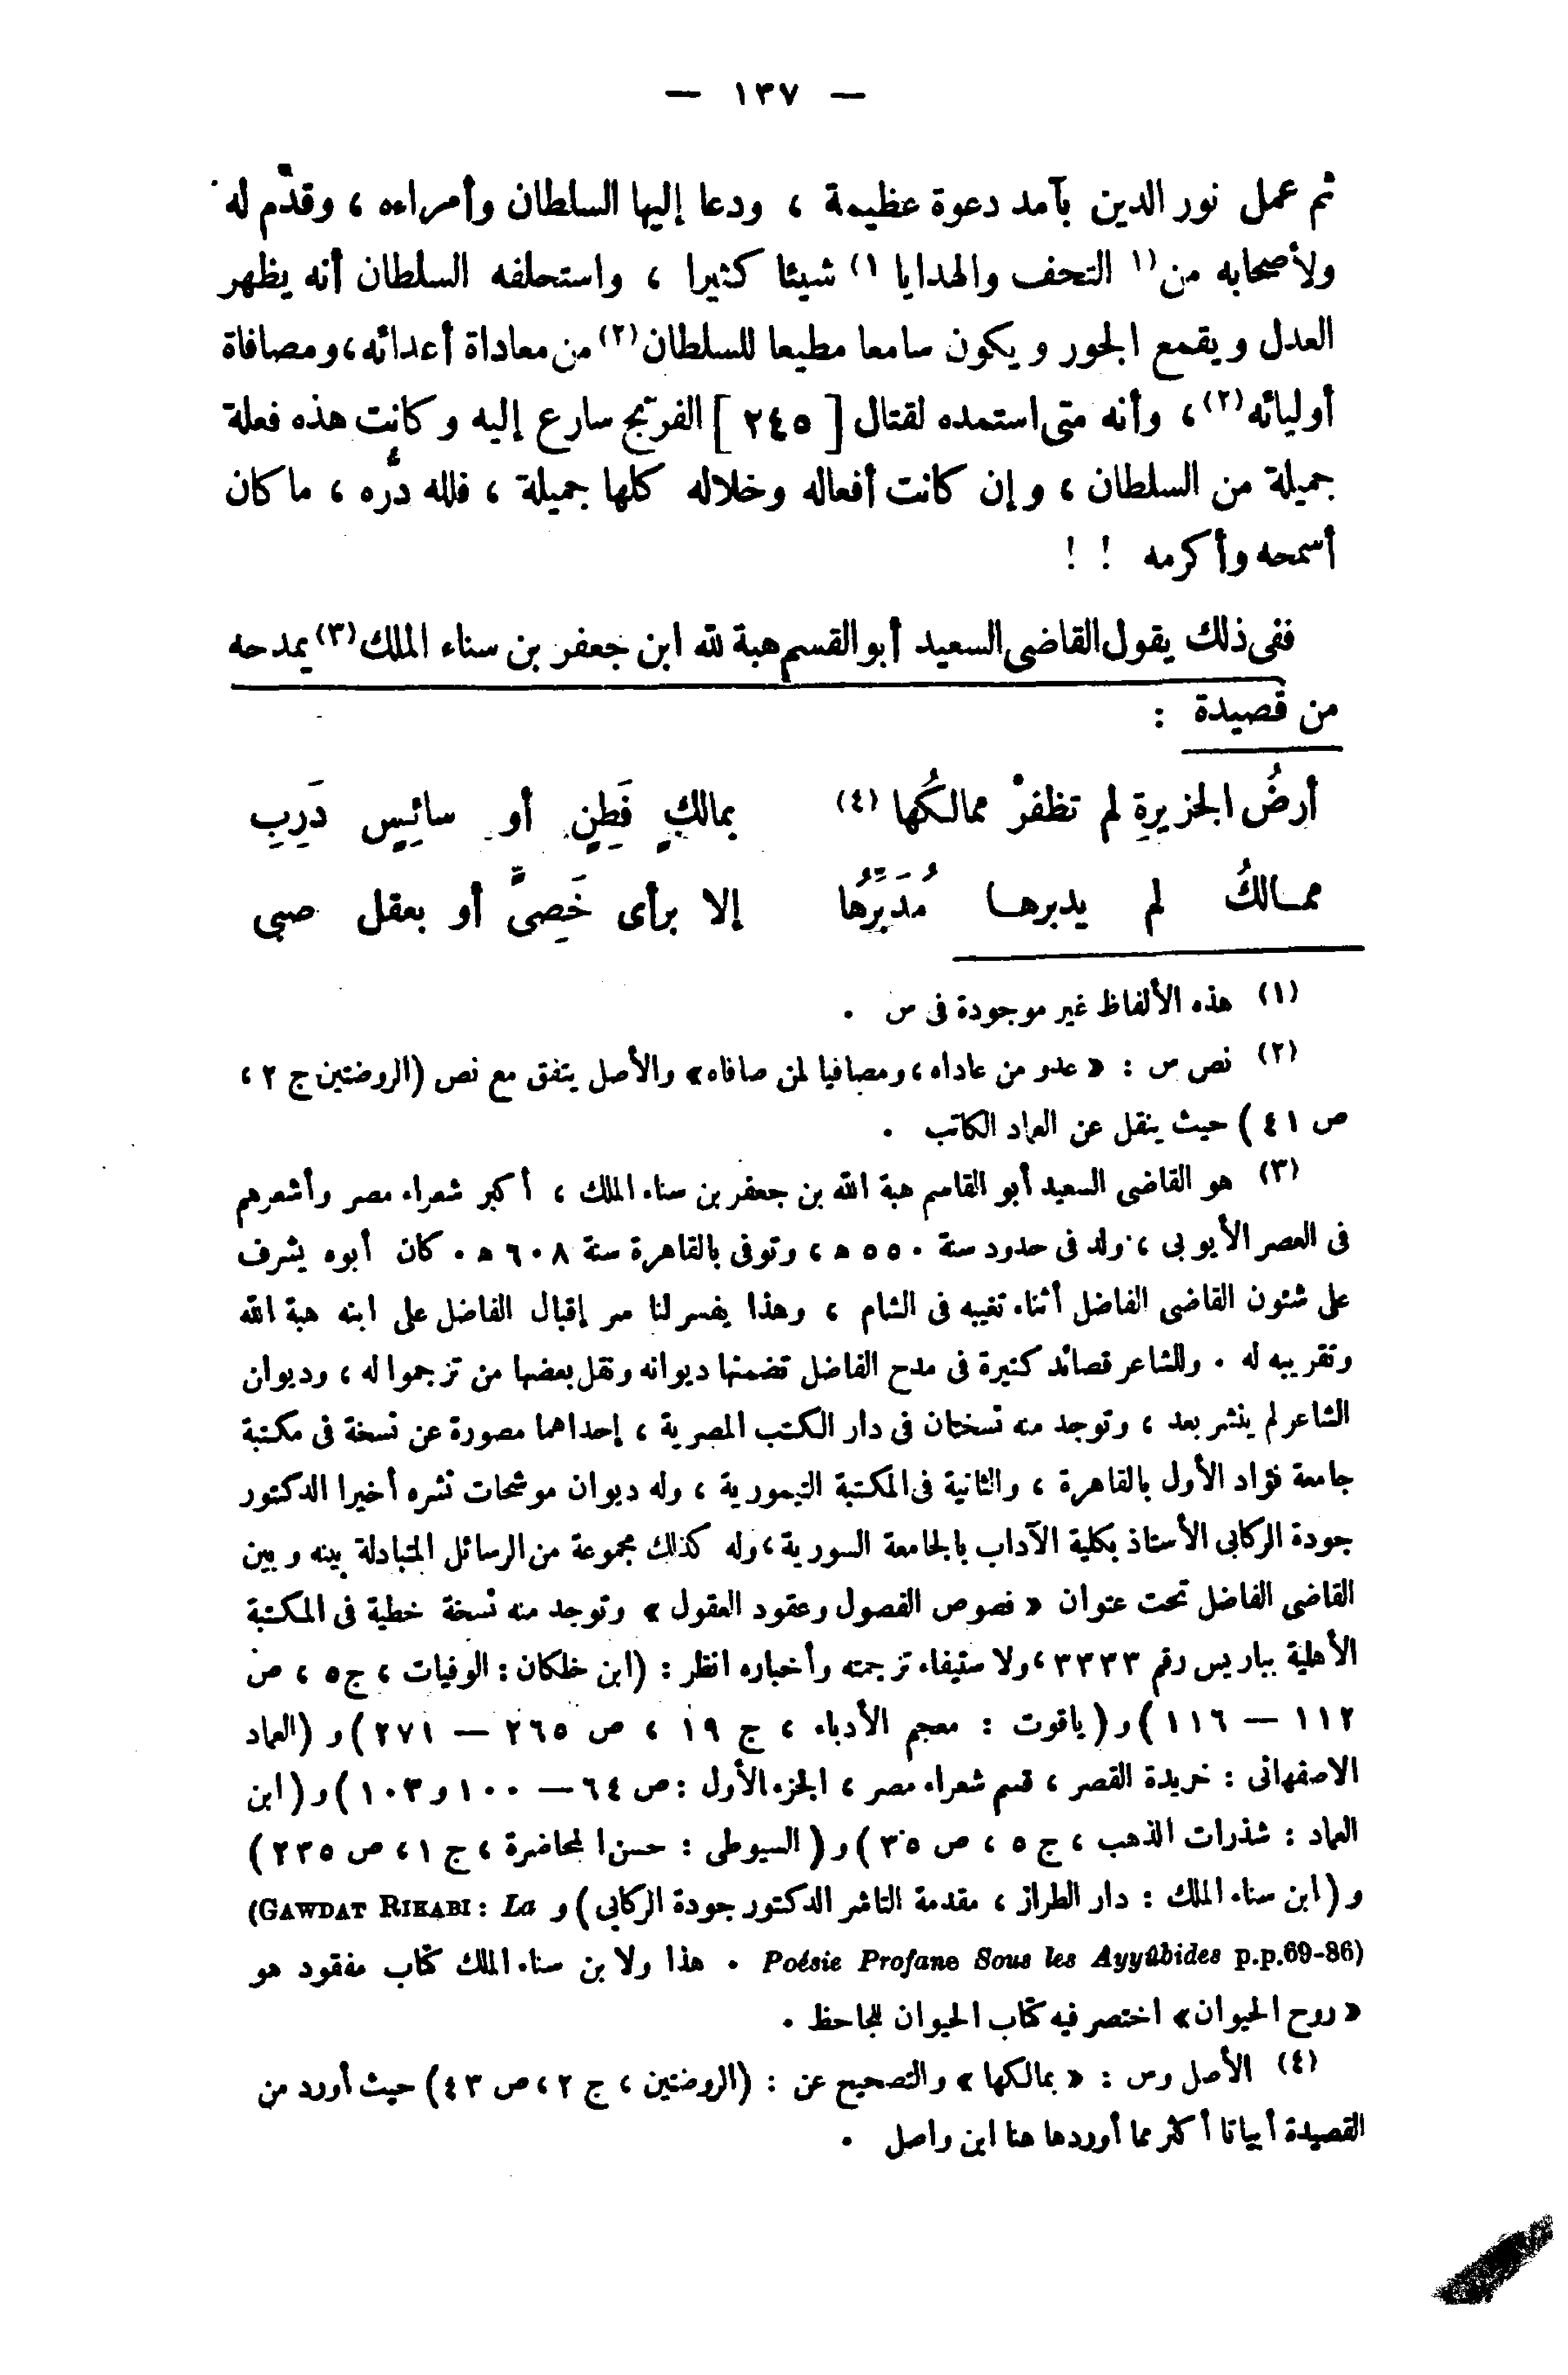 — ١٣٧ —
ثم عمل نور الدين بآمد دعوة عظيمة ، ودعا إليها السلطان وأمراءه ، وقدّم له
ولأصحابه من (١ التحف والهدايا ١) شيئا كثيرا ، واستحلفه السلطان أنه يظهر
العدل ويقمع الجور ويكون سامعا مطيعا للسلطان (٢) من معاداة أعدائه ، ومصافاة
أوليائه (٢) ، وأنه متى استمده لقتال [ ٢٤٥ ] الفرنج سارع إليه وكانت هذه فعلة
جميلة من السلطان ، وإن كانت أفعاله وخلاله كلها جميلة ، فلله درُّه ، ما كان
أسمحه وأكرمه ! !
ففى ذلك يقول القاضى السعيد أبو القسم هبة لله ابن جعفر بن سناء الملك (٣) يمدحه
من قصيدة :
أرضُ الجزيرةِ لم تظفرْ ممالكُها (٤) بمالكٍ فَطِنٍ أو سائِسٍ دَرِبِ
ممالكُ لم يدبرها مُدَبِّرُها إلا برأى خَصِىٍّ أو بعقل صبى
(١) هذه الألفاظ غير موجودة فى س .
(٢) نص س : « عدو من عاداه ، ومصافيا لمن صافاه » والأصل يتفق مع نص (الروضتين ج ٢ ،
ص ٤١ ) حيث ينقل عن العماد الكاتب .
(٣) هو القاضى السعيد أبو القاسم هبة الله بن جعفر بن سناء الملك ، أكبر شعراء مصر وأشعرهم
فى العصر الأيوبى ، ولد فى حدود سنة ٥٥٠ ه ، وتوفى بالقاهرة سنة ٦٠٨ ه . كان أبوه يشرف
على شئون القاضى الفاضل أثناء تغيبه فى الشام ، وهذا يفسر لنا سر إقبال الفاضل على ابنه هبة الله
وتقريبه له . وللشاعر قصائد كثيرة فى مدح الفاضل تضمنها ديوانه ونقل بعضها من ترجموا له ، وديوان
الشاعر لم ينشر بعد ، وتوجد منه نسختان فى دار الكتب المصرية ، إحداهما مصورة عن نسخة فى مكتبة
جامعة فؤاد الأول بالقاهرة ، والثانية فى المكتبة التيمورية ، وله ديوان موشحات نشره أخيرا الدكتور
جودة الركابى الأستاذ بكلية الآداب بالجامعة السورية ، وله كذلك مجموعة من الرسائل المتبادلة بينه وبين
القاضى الفاضل تحت عنوان « فصوص الفصول وعقود العقول » وتوجد منه نسخة خطية فى المكتبة
الأهلية بباريس رقم ٣٣٣٣ ، ولاستيفاء ترجمته وأخباره انظر : (ابن خلكان : الوفيات ، ج ٥ ، ص
١١٢ — ١١٦ ) و ( ياقوت : معجم الأدباء ، ج ١٩ ، ص ٢٦٥ — ٢٧١ ) و (العماد
الاصفهانى : خريدة القصر ، قسم شعراء مصر ، الجزء الأول : ص ٦٤ — ١٠٠ و ١٠٣ ) و (ابن
العماد : شذرات الذهب ، ج ٥ ، ص ٣٥ ) و ( السيوطى : حسن المحاضرة ، ج ١ ، ص ٢٣٥ )
و (ابن سناء الملك : دار الطراز ، مقدمة الناشر الدكتور جودة الركابى ) و (GAWDAT RIKABI : La
Poésie Profane Sous les Ayyûbides p.p.69-86) . هذا ولابن سناء الملك كتاب مفقود هو
« روح الحيوان » اختصر فيه كتاب الحيوان للجاحظ .
(٤) الأصل وس : « بمالكها » والتصحيح عن : (الروضتين ، ج ٢ ، ص ٤٣ ) حيث أورد من
القصيدة أبياتا أكثر مما أوردها هنا ابن واصل .